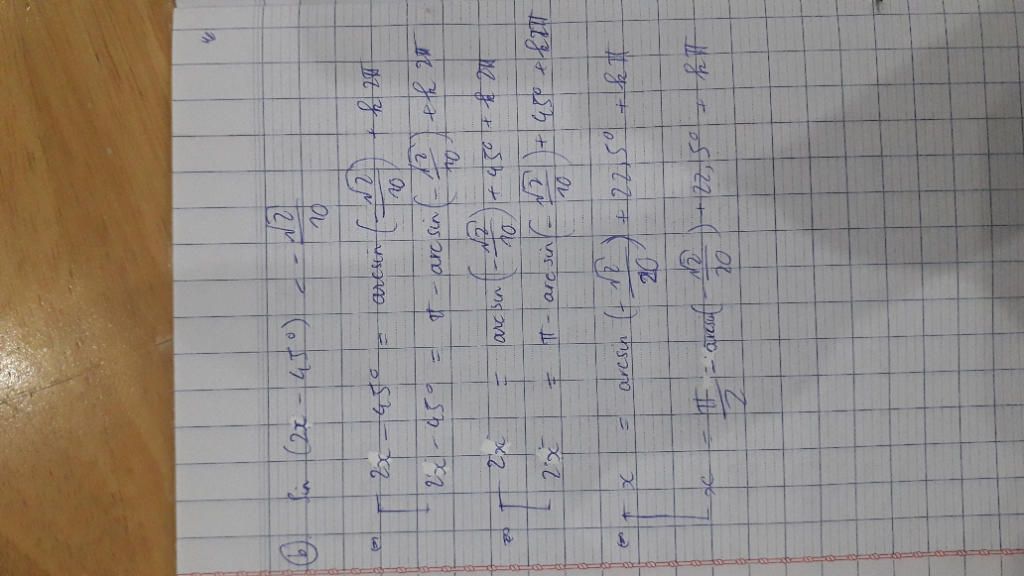 b) sin (2x - 45°) < - √2/10
⇔ [ 2x - 45° = arcsin(-√2/10) + k2π
[ 2x - 45° = π - arcsin(-√2/10) + k2π
⇔ [ 2x = arcsin(-√2/10) + 45° + k2π
[ 2x = π - arcsin(-√2/10) + 45° + k2π
⇔ [ x = arcsin(-√2/20) + 22,5° + kπ
[ x = π/2 - arcsin(-√2/20) + 22,5° + kπ